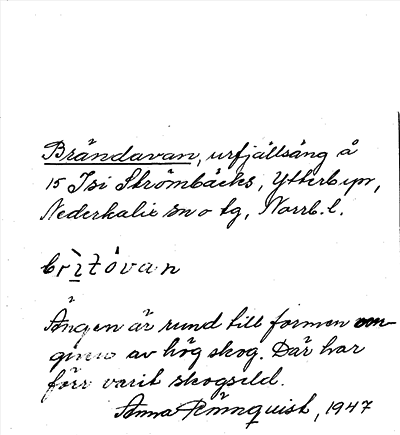 Brändavan, urfjällsäng å
15 Isi Strömbäcks, Ytterbyn,
Nederkalix sn o tg, Norrb. l.
Ängen är rund till formen om-
given av hög skog. Där har
förr varit skogseld.
Anna Rönnquist, 1947